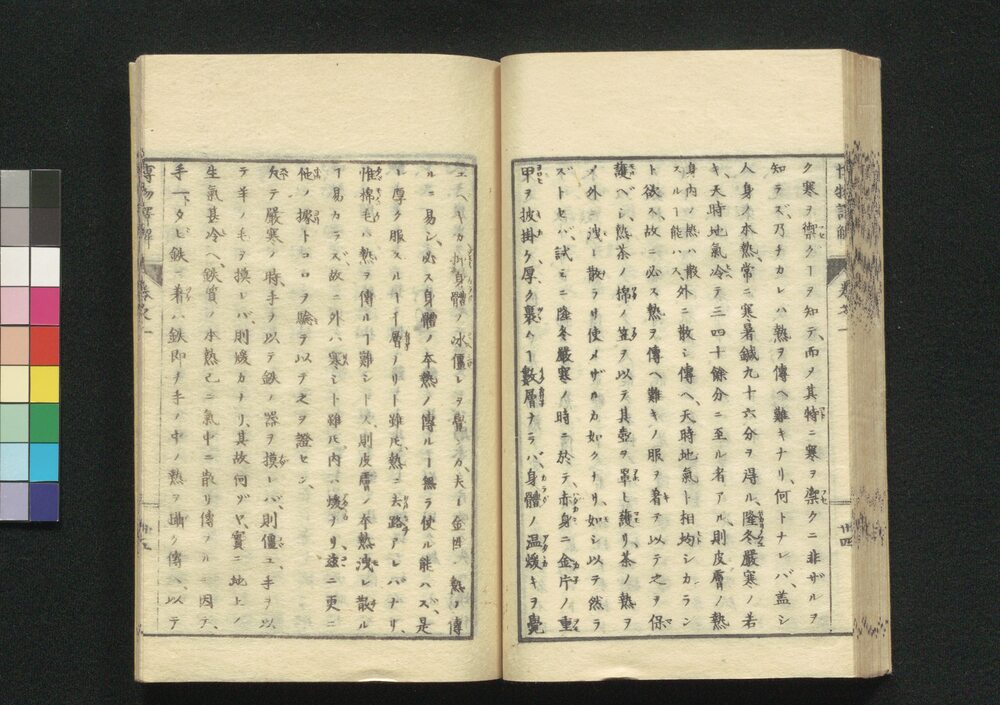 ク寒ヲ禦クーヲ知テ、而メ其特ニ寒ヲ禦クニ非ザルヲ
知ラズ、乃チカレハ熱ヲ傳ヘ難キナリ、何トナレバ、盖シ
人身ノ本熱常ニ寒暑鍼九十六分ヲ得ル、隆冬嚴寒ノ若
キ、天時地氣冷テ三四十餘分ニ至ル名アル、則皮膚ノ熱
身内ノ熱ハ散外ニ散シ傳ヘ、天時地氣ト相均シカラン
ト欲ス、故ニ必ス熱ヲ傳ヘ難キノ服ヲ着テ以テ之ヲ保
スルー能ハス、
護ベシ、熱茶ノ棉ノ笠ヲ以テ其壺ヲ罩ヒ護リ、茶ノ熱ヲ
メ外ニ洩レ散ラリ使メザルカ如クナリ、如シ以テ然ラ
ズトセバ、試ミニ隆冬嚴寒ノ時ニ於テ、赤身ニ金片ノ重
甲ヲ披掛ケ、厚ク裹ヘー數層ナラバ、身體ノ温煖キヲ覺
博物語解 巻之一 廿四
ルニ易シ、必ス身體ノ本熱ノ傳ルー無ラ使ル能ハズ、是
レ厚ク服スルー十層ノリト雖ㇳモ、熱ニ去路アレバナリ、
惟棉毛ハ熱ヲ傳ルー難シトス、則皮膚ノ本熱洩レ散ル
ー易カラズ、故ニ外ハ寒シト雖ㇳモ、内ハ煖ナリ、遠ニ更ニ
他ノ據トコロノ驗テ以テ之ヲ證セン、
凡テ嚴寒ノ時、手ヲ以テ鉄ノ器ヲ摸レバ、則僵ユ、手ヲ以
テ羊ノ毛ヲ摸レバ、則煖カナリ、其故何ゾヤ、實ニ地上ノ
生氣甚冷ヘ、鉄質ノ本熱已ニ氣中ニ散リ傳フルニ因テ、
手一タビ鉄ニ着ハ鉄即チ手ノ中ノ熱ヲ攝ク傳ヘ以テ